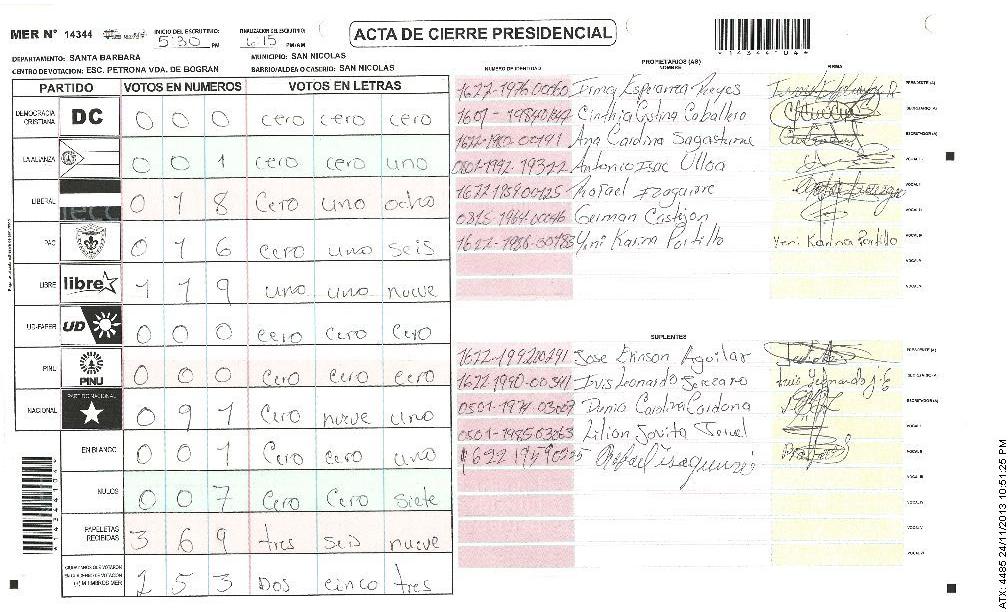 MER N° 14344
INICIO DEL ESCRUTINIO:
5:30 PM
FINALIZACION DEL ESCRUTINIO:
6:15 PM/AM
ACTA DE CIERRE PRESIDENCIAL
DEPARTAMENTO: SANTA BARBARA
MUNICIPIO: SAN NICOLAS
CENTRO DE VOTACION: ESC. PETRONA VDA. DE BOGRAN
BARRIO/ALDEA O CASERIO: SAN NICOLAS
PARTIDO VOTOS EN NUMEROS VOTOS EN LETRAS
DEMOCRACIA CRISTIANA DC 0 0 0 cero cero cero
LA ALIANZA 0 0 1 cero cero uno
LIBERAL 0 1 8 Cero uno ocho
PAC 0 1 6 Cero uno seis
LIBRE libre 1 1 9 uno uno nueve
UD-FAPER UD 0 0 0 cero cero cero
PINU PINU 0 0 0 cero cero cero
NACIONAL PARTIDO NACIONAL 0 9 1 Cero nueve uno
EN BLANCO 0 0 1 Cero cero uno
NULOS 0 0 7 Cero Cero siete
PAPELETAS RECIBIDAS 3 6 9 tres seis nueve
2 5 3 Dos cinco tres
PROPIETARIOS (AS)
NUMERO DE IDENTIDAD NOMBRE FIRMA
Irma Esperanza Reyes PRESIDENTE (A)
Cinthia Cristina Caballero SECRETARIO (A)
Ana Carolina ESCRUTADOR (A)
0801-1992-19322 Antonio Isac Ulloa VOCAL I
Rafael VOCAL II
0815-1964-00046 German Castejon VOCAL III
Yeni Karina Portillo Yeni Karina Portillo VOCAL IV
VOCAL V
SUPLENTES
Jose Erinson Aguilar PRESIDENTE (A)
Luis Leonardo SECRETARIO (A)
Dunia Carolina Cardona ESCRUTADOR (A)
Lilian Jovita VOCAL I
Rafael VOCAL II
VOCAL III
VOCAL IV
VOCAL V
VOCAL VI
ATX: 4485 24/11/2013 10:51:25 PM